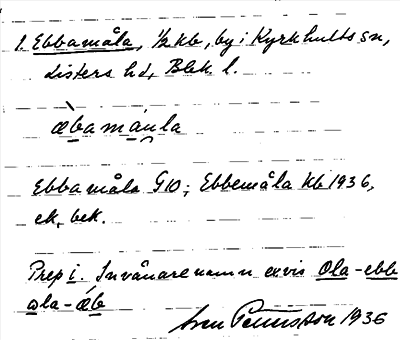 1. Ebbamåla, 1/2 kb, by i Kyrkhults sn,
Listers hd, Blek. l.
æ̀bamåṉla
Ebbamåla G10; Ebbemåla kb 1936,
ek, bek.
Prep i. Invånarenamn exvis Ola-ebb
ola-ǽb
Sven Benson 1936